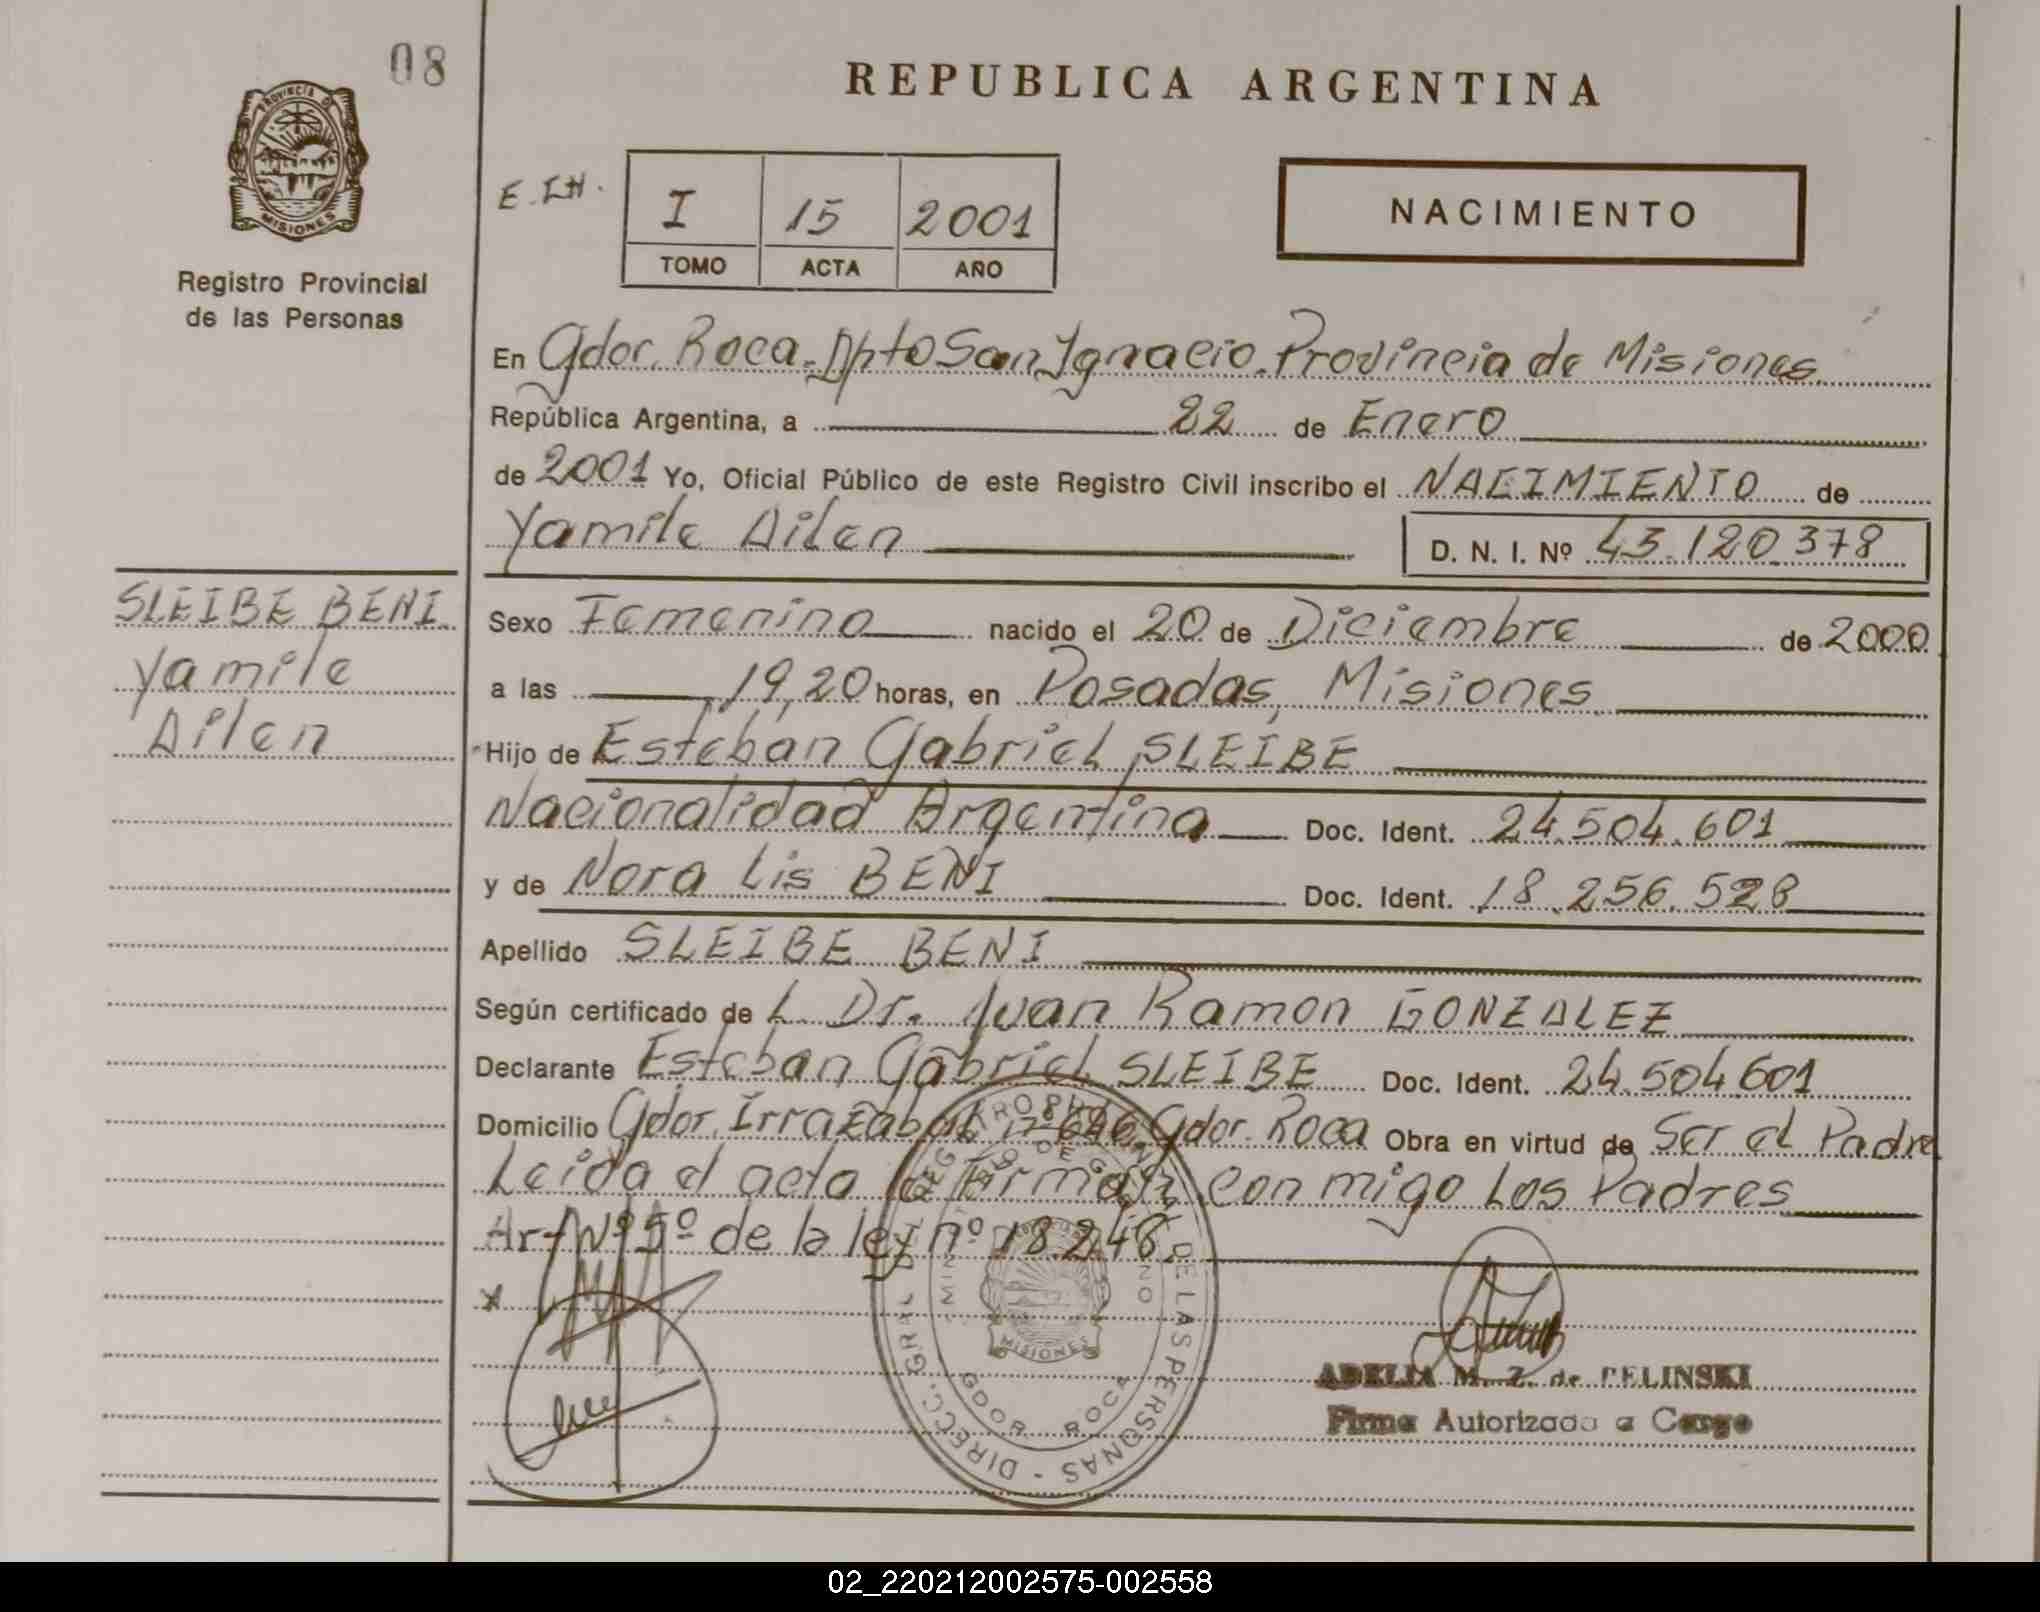 08
REPUBLICA ARGENTINA
PROVINCIA DE
MISIONES
Registro Provincial
de las Personas
E.CH.
I 15 2001
TOMO ACTA AÑO
NACIMIENTO
En Gdor. Roca. Dpto San Ignacio. Provincia de Misiones
República Argentina, a 22 de Enero
de 2001 Yo, Oficial Público de este Registro Civil inscribo el NACIMIENTO de
Yamile Ailen D. N. I. Nº 43.120.378
SLEIBE BENI
Yamile
Ailen
Sexo Femenino nacido el 20 de Diciembre de 2000
a las 19,20 horas, en Posadas, Misiones
Hijo de Esteban Gabriel SLEIBE
Nacionalidad Argentina Doc. Ident. 24.504.601
y de Nora Lis BENI Doc. Ident. 18.256.528
Apellido SLEIBE BENI
Según certificado de L Dr. Juan Ramon GONZALEZ
Declarante Esteban Gabriel SLEIBE Doc. Ident. 24.504.601
Domicilio Gdor. Irrazabal Gdor. Roca Obra en virtud de Ser el Padre
Leida el acta la firman conmigo Los Padres
Art Nº 5º de la ley nº 18.248.
x
DIRECC. GRAL. DEL REGISTRO PROVINCIAL DE LAS PERSONAS
MISIONES
GDOR. ROCA
ADELIA M. Z. de PELINSKI
Firma Autorizada a Cargo
02_220212002575-002558